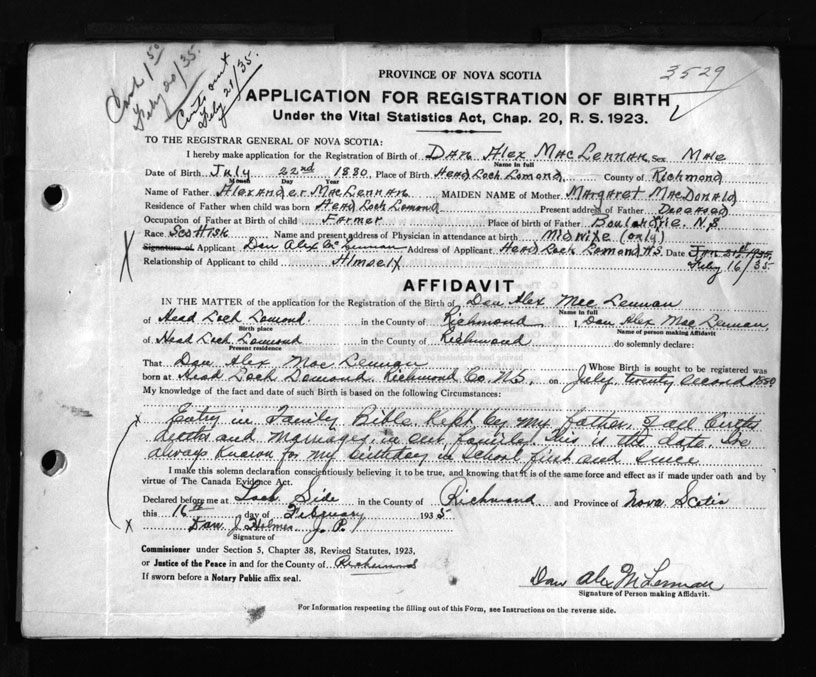 Cash 1.50
Feby 20/35.
Certs out
Feby 21/35.
3529
PROVINCE OF NOVA SCOTIA
APPLICATION FOR REGISTRATION OF BIRTH
Under the Vital Statistics Act, Chap. 20, R. S. 1923.
TO THE REGISTRAR GENERAL OF NOVA SCOTIA:
I hereby make application for the Registration of Birth of Dan Alex MacLennan Sex Male
Name in full
Date of Birth July 22nd 1880. Place of Birth Head Loch Lomond, County of Richmond
Month Day Year
Name of Father Alexander MacLennan MAIDEN NAME of Mother Margaret MacDonald
Residence of Father when child was born Head Loch Lomond Present address of Father Deceased
Occupation of Father at Birth of child Farmer Place of Birth of Father N.S.
Race Scottish Name and present address of Physician in attendance at birth Midwife (only)
Signature of Applicant Dan Alex McLennan Address of Applicant Head Loch Lomond N.S. Date
Feby 16/35
Relationship of Applicant to child Himself
AFFIDAVIT
IN THE MATTER of the application for the Registration of the Birth of Dan Alex Mac Lennan
Name in full
of Head Loch Lomond in the County of Richmond I, Dan Alex Mac Lennan
Birth place Name of person making affidavit
of Head Loch Lomond in the County of Richmond do solemnly declare:
Present residence
That Dan Alex Mac Lennan Whose Birth is sought to be registered was
born at Head Loch Lomond Richmond Co. N.S., on July twenty second 1880
My knowledge of the fact and date of such Birth is based on the following Circumstances:
x Entry in Family Bible kept by my father of all births
deaths and marriages in our family. This is the date I've
always known for my birthday in School first and since
I make this solemn declaration conscientiously believing it to be true, and knowing that it is of the same force and effect as if made under oath and by
virtue of The Canada Evidence Act.
Declared before me at Loch Side in the County of Richmond and Province of Nova Scotia
this 16th day of February 1935
x Dan. J. Holmes J. P.
Signature of
Commissioner under Section 5, Chapter 38, Revised Statutes, 1923,
or Justice of the Peace in and for the County of Richmond
If sworn before a Notary Public affix seal.
Dan Alex McLennan
Signature of Person making Affidavit.
For Information respecting the filling out of this Form, see Instructions on the reverse side.